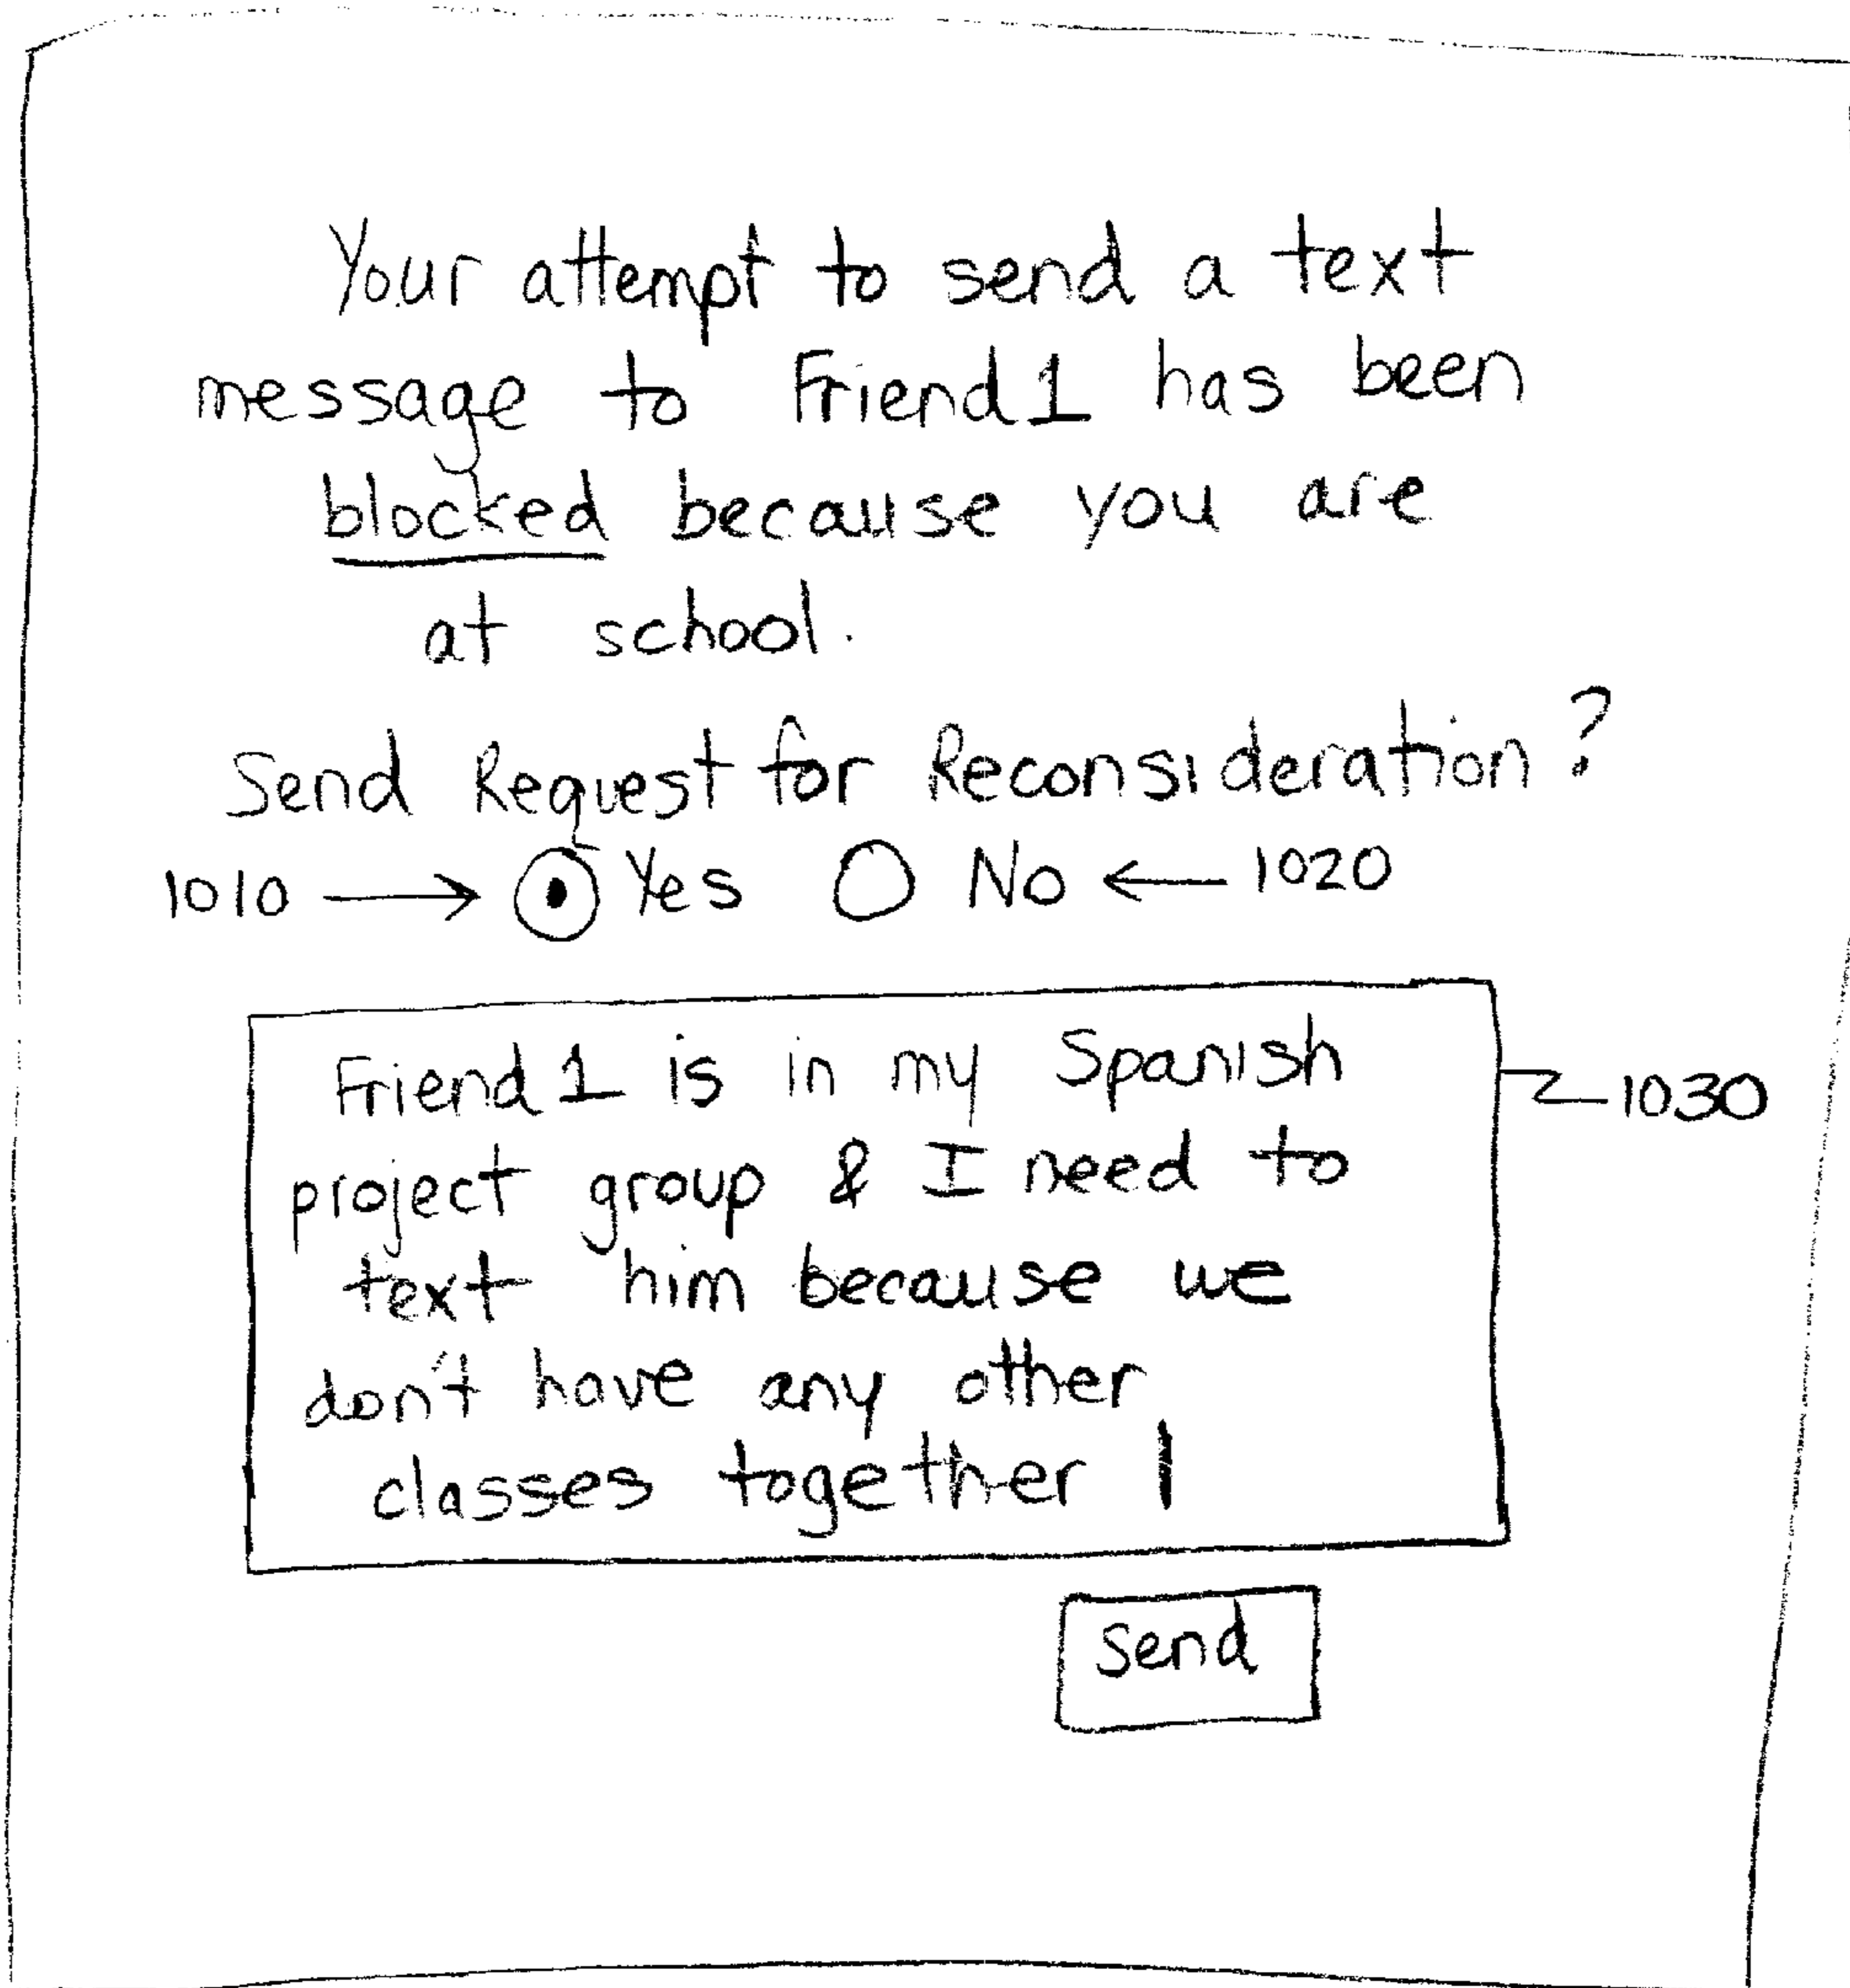 Your attempt to send a text
message to Friend1 has been
blocked because you are
at school.
Send Request for Reconsideration?
1010 Yes No 1020
Friend1 is in my Spanish
project group & I need to
text him because we
don't have any other
classes together
1030
Send